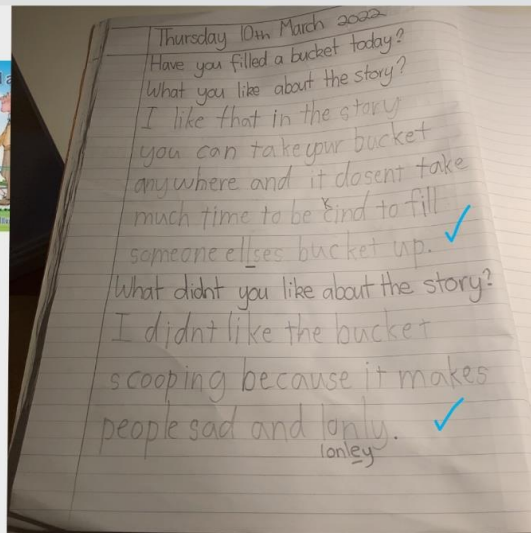 Thursday 10th March 2022
Have you filled a bucket today?
What you like about the story?
I like that in the story
you can take your bucket
anywhere and it dosent take
much time to be kind to fill
someone ellses bucket up.
What didnt you like about the story?
I didnt like the bucket
scooping because it makes
people sad and lonly.
lonley